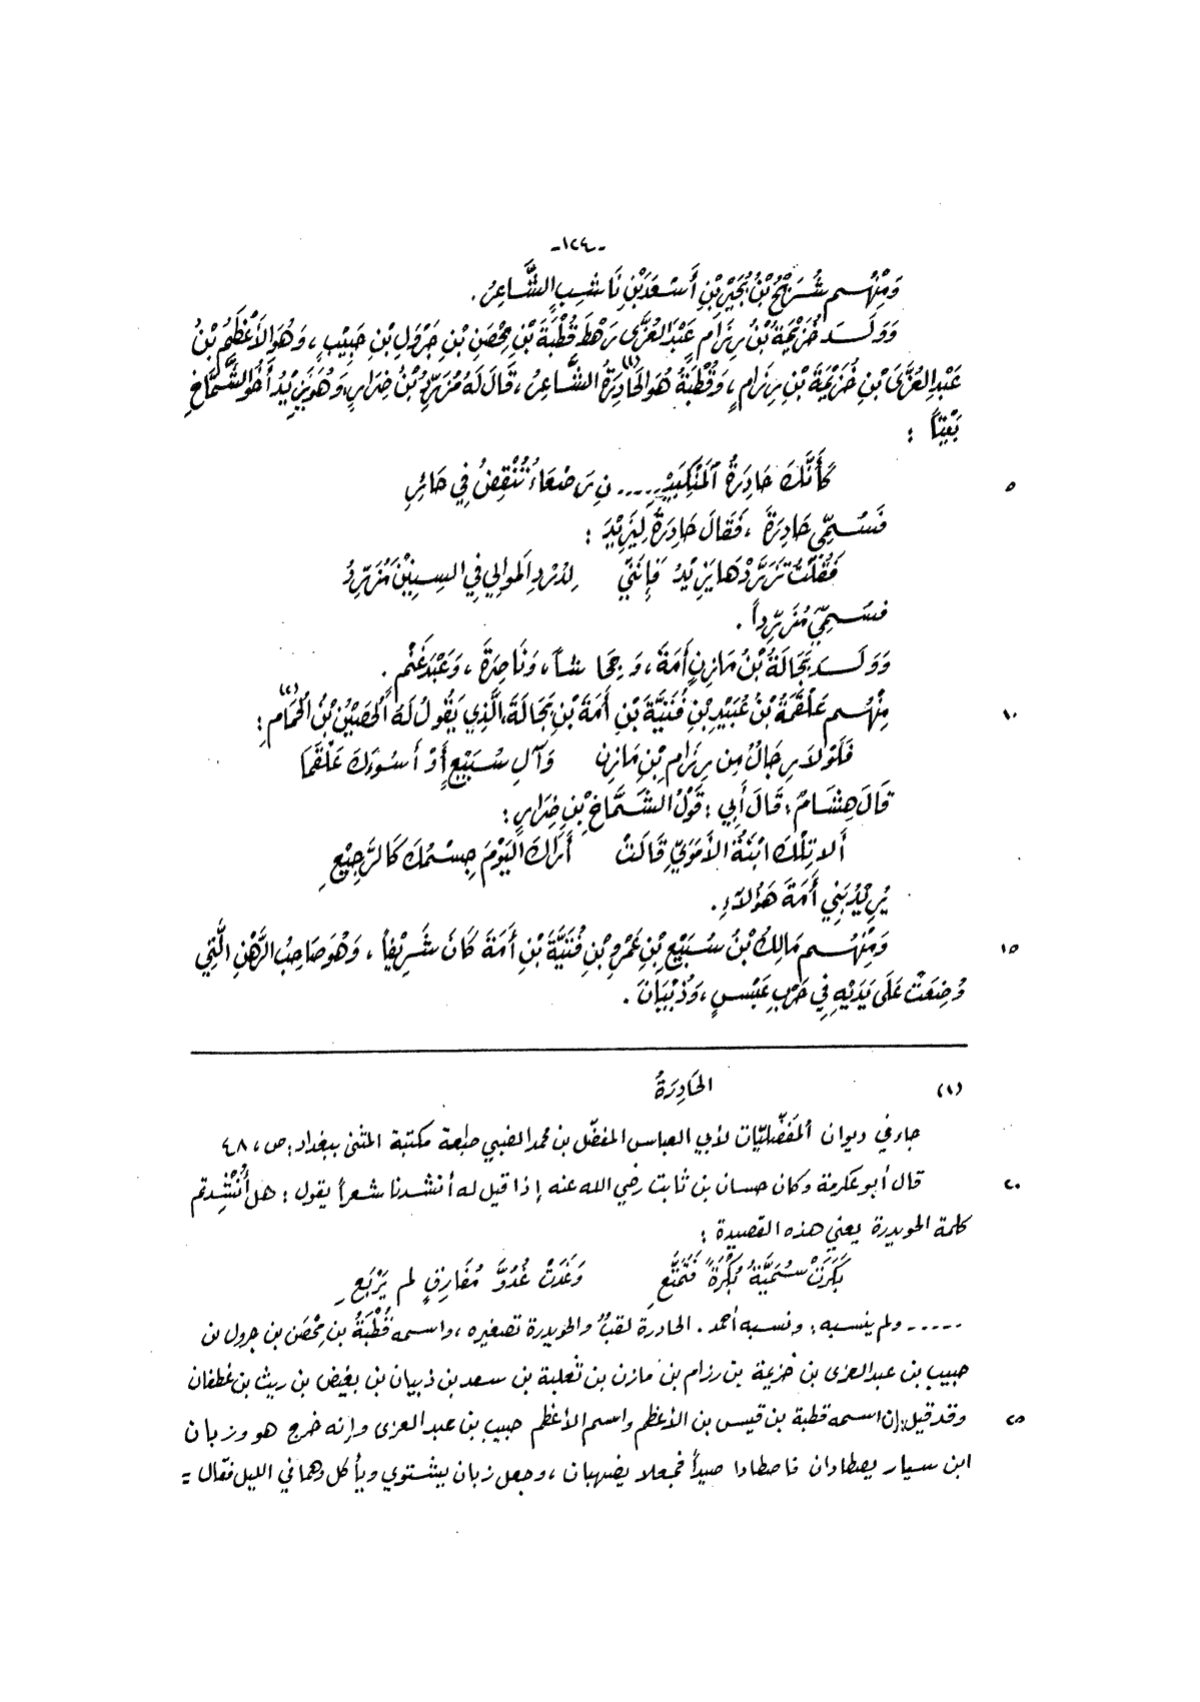 -١٢٤-
وَمِنْهُم شُرَيْحُ بْنُ بُجَيْرِ بْنِ أَسْعَدَ بْنِ نَاشِبٍ الشَّاعِرُ.
وَوَلَدَ خُزَيْمَةُ بْنُ رِزَامٍ عَبْدَ العُزَّى رَهْطَ قُطْبَةَ بْنِ مِحْصَنِ بْنِ جَرْوَلِ بْنِ حَبِيْبٍ، وَهُوَ الأَعْظَمُ بْنُ
عَبْدِ العُزَّى بْنِ خُزَيْمَةَ بْنِ رِزَامٍ، وَقُطْبَةُ هُوَ الحَادِرَةُ(١) الشَّاعِرُ، قَالَ لَهُ مُزَرِّدُ بْنُ ضِرَارٍ، وَهُوَ يَزِيْدُ أَخُو الشَّمَّاخِ
بَيْتاً :
كَأَنَّكَ حَادِرَةُ المَنْكِبَيْـ ..... نِ رَصْعَاءُ تُنْقِضُ فِي حَائِرِ
٥
فَسُمِّيَ حَادِرَةَ، فَقَالَ حَادِرَةُ لِيَزِيْدَ :
فَقُلْتُ تَزَرَّدْهَا يَزِيْدُ فَإِنَّنِي لِدُرْدِ المَوَالِي فِي السِنِيْنَ مُزَرِّدُ
فسُمِّيَ مُزَرِّداً.
وَوَلَدَ بَجَالَةُ بْنُ مَازِنٍ أَمَةَ، وَجِحَاشاً، وَنَاصِرَةَ، وَعَبْدَ غَنْمٍ.
مِنْهُم عَلْقَمَةُ بْنُ عُبَيْدِ بْنِ قُنَيَّةَ بْنِ أَمَةَ بْنِ بَجَالَةَ، الَّذِي يَقُولُ لَهُ الحُصَيْنُ بْنُ الحُمَامِ(٢):
١٠
فَلَوْلاَ رِجَالٌ مِن رِزَامِ بْنِ مَازِنٍ وَآلِ سُبَيْعٍ أَوْ أَسُوءَكَ عَلْقَمَا
قَالَ هِشَامٌ: قَالَ أَبِي: قَوْلُ الشَّمَّاخِ بْنِ ضِرَارٍ:
أَلا تِلْكَ ابْنَةُ الأَمَوِيِّ قَالَتْ أَرَاكَ اليَوْمَ جِسْمُكَ كَالرَّجِيْعِ
يُرِيْدُ بَنِي أَمَةَ هَؤُلاَءِ.
وَمِنْهُم مَالِكُ بْنُ سُبَيْعِ بْنِ عَمْرِو بْنِ قُنَيَّةَ بْنِ أَمَةَ كَانَ شَرِيْفاً، وَهُوَ صَاحِبُ الرَّهْنِ الَّتِي
١٥
وُضِعَتْ عَلَى يَدَيْهِ فِي حَرْبِ عَبْسٍ، وَذُبْيَانَ.
(١) الحَادِرَةُ
جاء في ديوان المُفَضَّلِيّات لأبي العباس المفضّل بن محمد الضبي طبعة مكتبة المثنى ببغداد: ص، ٤٨
قال أبو عكرمة وكان حسان بن ثابت رضي الله عنه إذا قيل له أنشدنا شعراً يقول : هل أُنْشِدتم
٢٠
كلمة الحويدرة يعني هذه القصيدة :
بَكَرَتْ سُمَيَّةُ بُكْرَةً فَتَمَتَّعِ وَغَدَتْ غُدُوَّ مُفَارِقٍ لم يَرْبَعِ
..... ولم ينسبه؛ ونسبه أحمد. الحادرة لقبٌ والحويدرة تصغيره، واسمه قُطْبَةُ بن مِحْصَن بن جرول بن
حبيب بن عبد العزى بن خزيمة بن رزام بن مازن بن ثعلبة بن سعد بن ذبيان بن بغيض بن ريث بن غطفان
وقد قيل: إن اسمه قطبة بن قيس بن الأعظم واسم الأعظم حبيب بن عبد العزى وإنه خرج هو وزبان
٢٥
ابن سيار يصطادان فاصطادا صيداً فجعلا يضهبان، وجعل زبان يشتوي ويأكل وهما في الليل فقال =